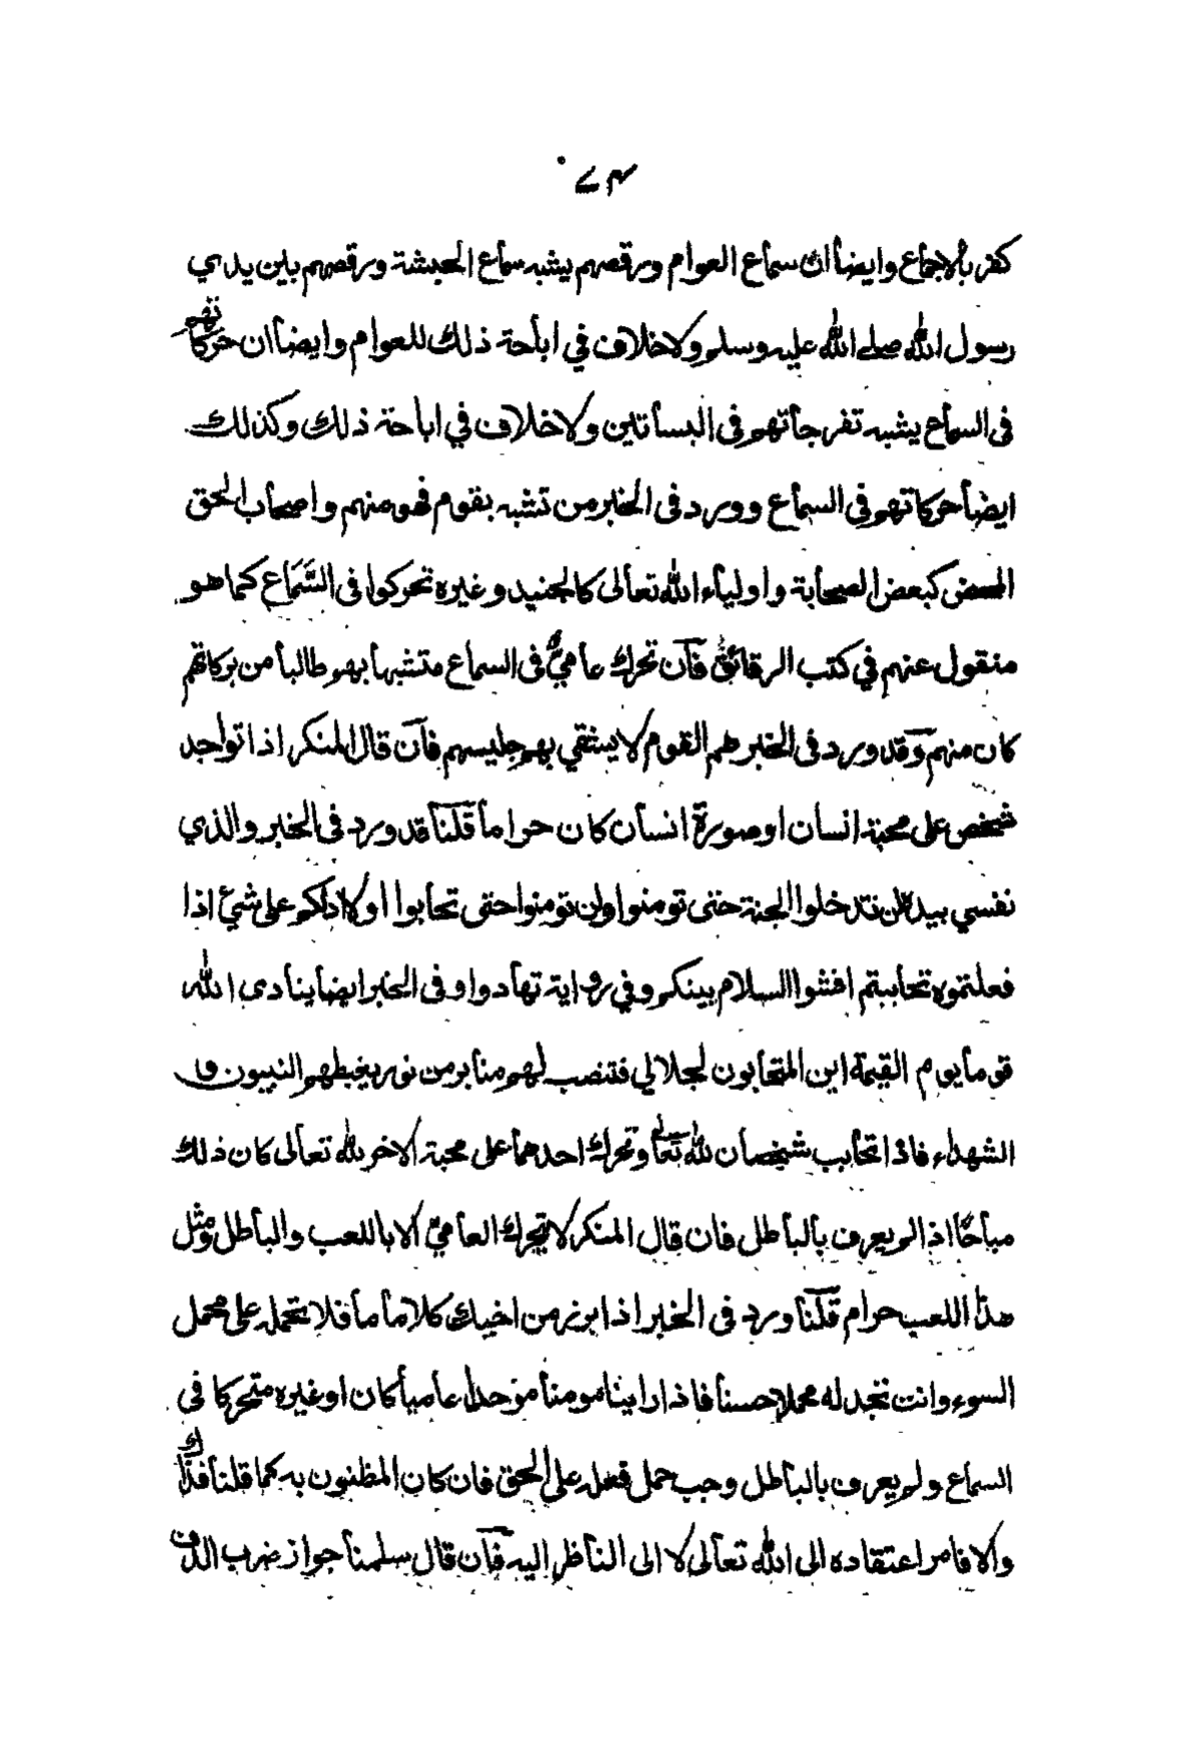 ٧٤
كفر بالاجماع وايضا ان سماع العوام ورقصهم يشبه سماع الحبشة ورقصهم بين يدي
رسول الله صلى الله عليه وسلم ولا خلاف في اباحة ذلك للعوام وايضا ان حركاتهم
في السماع يشبه تفرجاتهم في البساتين ولا خلاف في اباحة ذلك وكذلك
ايضا حركاتهم في السماع وورد في الخبر من تشبه بقوم فهو منهم واصحاب الحق
المحض كبعض الصحابة واولياء الله تعالى كالجنيد وغيره تحركوا في السَّمَاع كما هو
منقول عنهم في كتب الرقائق فآن تحرك عاميٌّ في السماع متشبها بهم طالبا من بركاتهم
كان منهم وقد ورد في الخبر هم القوم لا يشقي بهم جليسهم فآن قال المنكر اذا تواجد
شخص على محبة انسان او صورة انسان كان حراما قلنا قد ورد في الخبر والذي
نفسي بيده لن تدخلوا الجنة حتى تومنوا ولن تومنوا حتى تحابوا اولا ادلكم على شيئ اذا
فعلتموه تحاببتم افشوا السلام بينكم وفي رواية تهادوا وفى الخبر ايضا ينادى الله
قوما يوم القيمة اين المتحابون لجلالي فتنصب لهم منابر من نور يغبطهم النبيون و
الشهداء فاذا تحابب شخصان لله تعالى وتحرك احدهما على محبة الاخر لله تعالى كان ذلك
مباحًا اذ الم يعرف بالباطل فان قال المنكر لا يتحرك العاميّ الا باللعب والباطل ومثل
هذا اللعب حرام قلنا ورد في الخبر اذا برز من اخيك كلاما ما فلا تحمله على محمل
السوء وانت تجد له محملا حسنا فاذا راينا مومنا موحدا عاميا كان او غيره متحركا في
السماع ولم يعرف بالباطل وجب حمل فعله على الحق فان كان المظنون به كما قلنا فذاك
والا فامر اعتقاده الى الله تعالى لا الى الناظر اليه فآن قال سلمنا جواز ضرب الدف